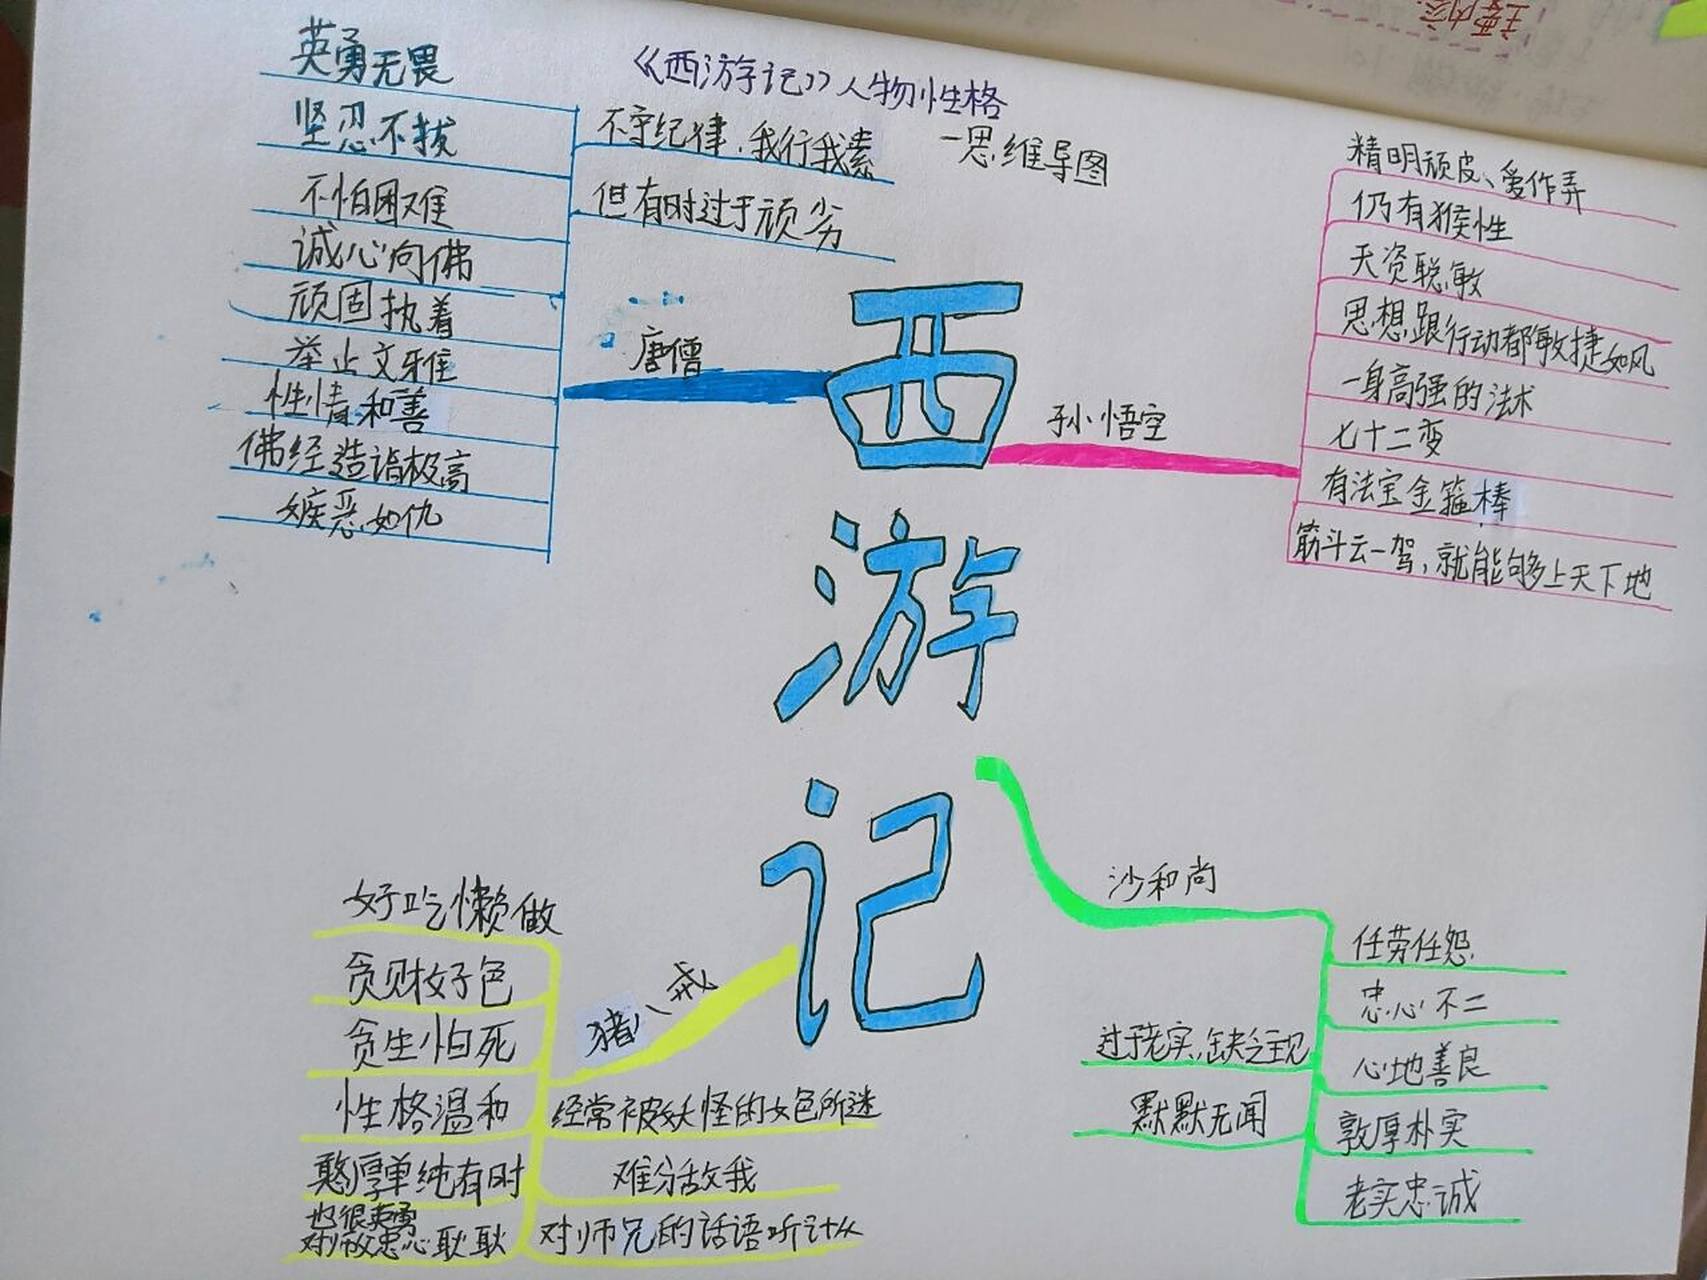 主要内容
《西游记》人物性格
一思维导图
西游记
唐僧
英勇无畏
坚忍不拔
不怕困难
诚心向佛
顽固执着
举止文雅
性情和善
佛经造诣极高
嫉恶如仇
不守纪律,我行我素
但有时过于顽劣
孙悟空
精明顽皮、爱作弄
仍有猴性
天资聪敏
思想跟行动都敏捷如风
一身高强的法术
七十二变
有法宝金箍棒
筋斗云一驾,就能够上天下地
猪八戒
好吃懒做
贪财好色
贪生怕死
性格温和
憨厚单纯有时
也很英勇
对师父忠心耿耿
经常被妖怪的女色所迷
难分敌我
对师兄的话语听计从
沙和尚
任劳任怨
忠心不二
心地善良
敦厚朴实
老实忠诚
过于老实,缺乏主见
默默无闻